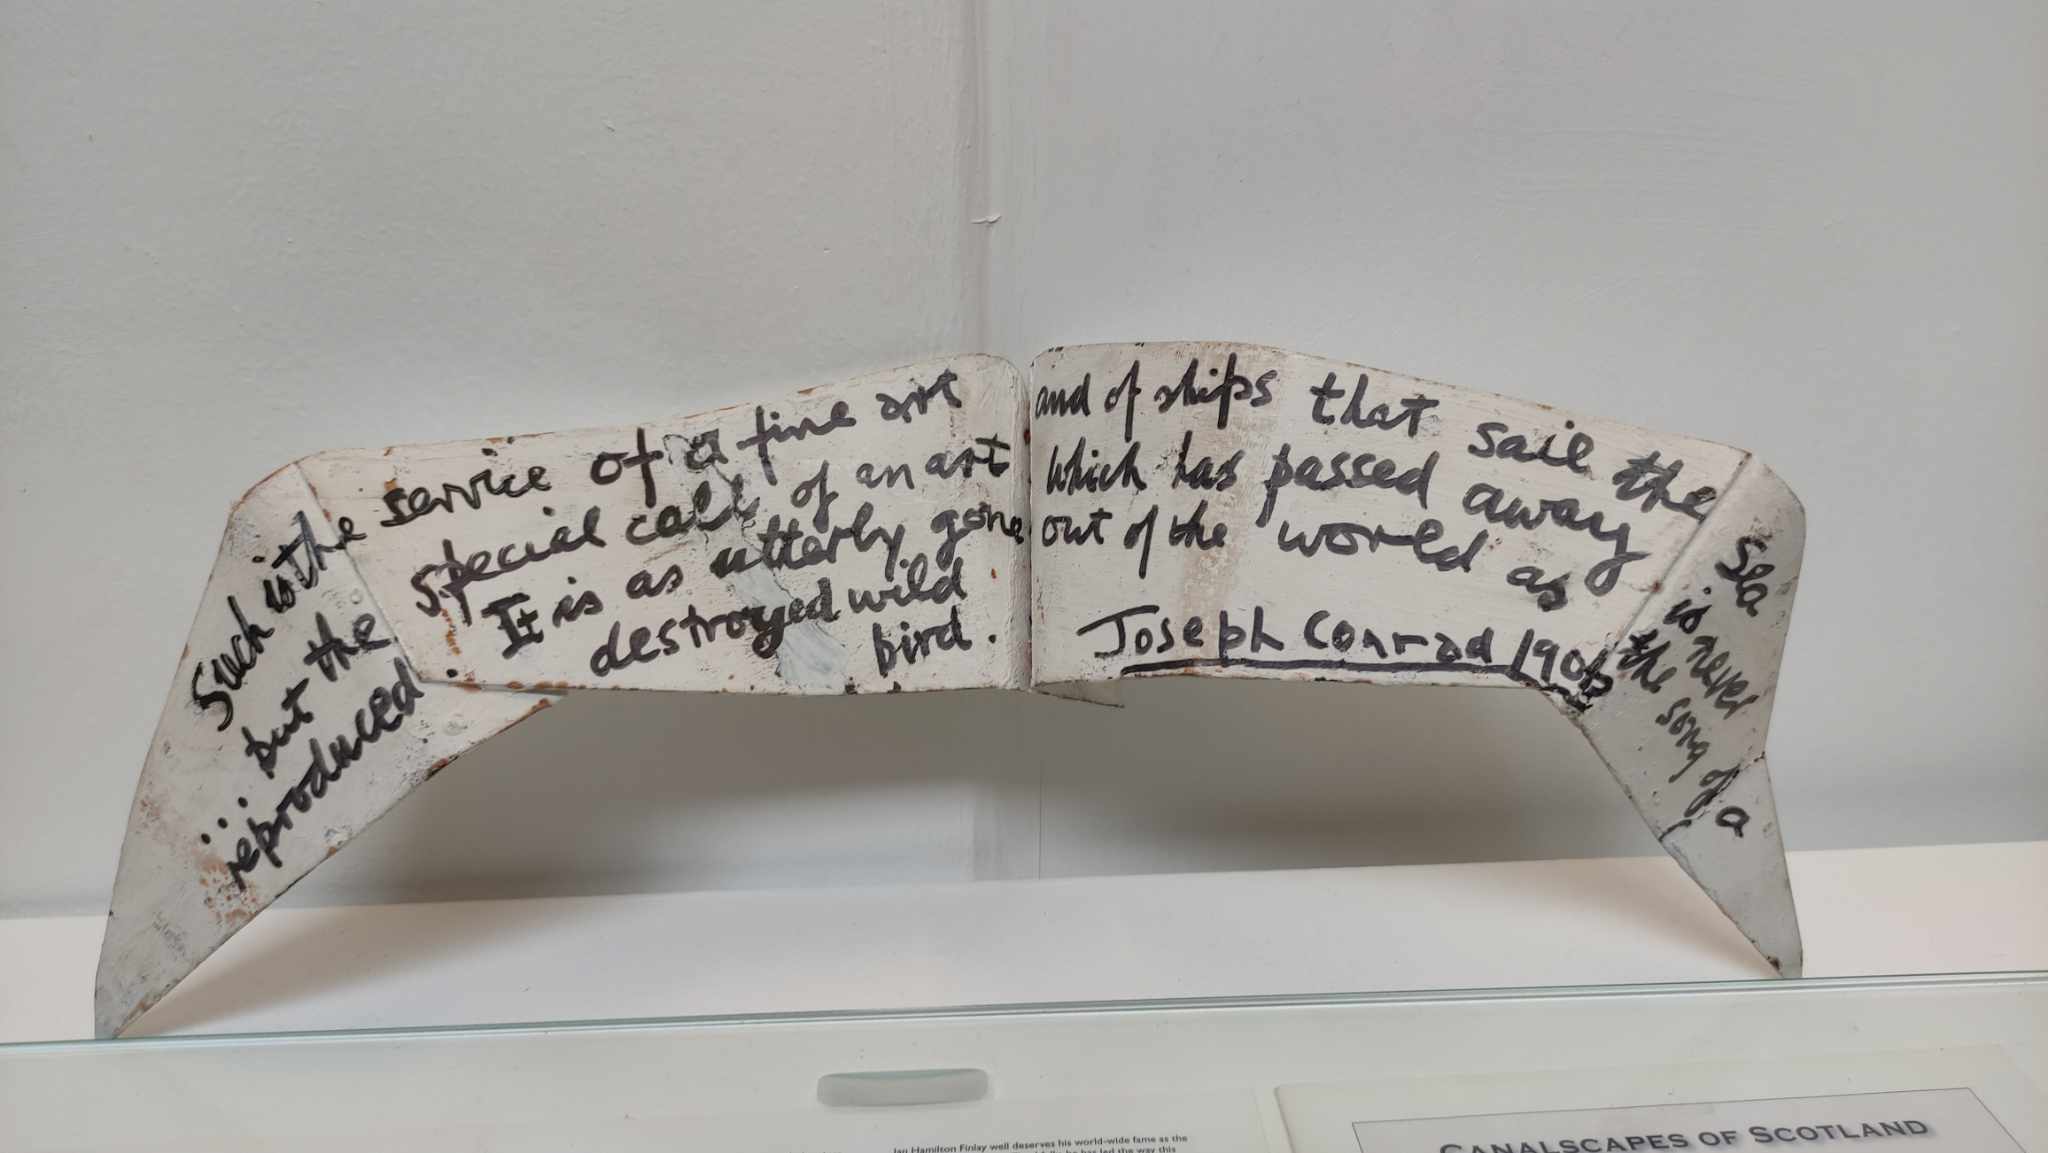 Such is the service of a fine art and of ships that sail the Sea
... but the special call of an art which has passed away is never
reproduced. It is as utterly gone out of the world as the song of a
destroyed wild
bird.
Joseph Conrad 1906
Ian Hamilton Finlay well deserves his world-wide fame as the
he has led the way this
CANALSCAPES OF SCOTLAND